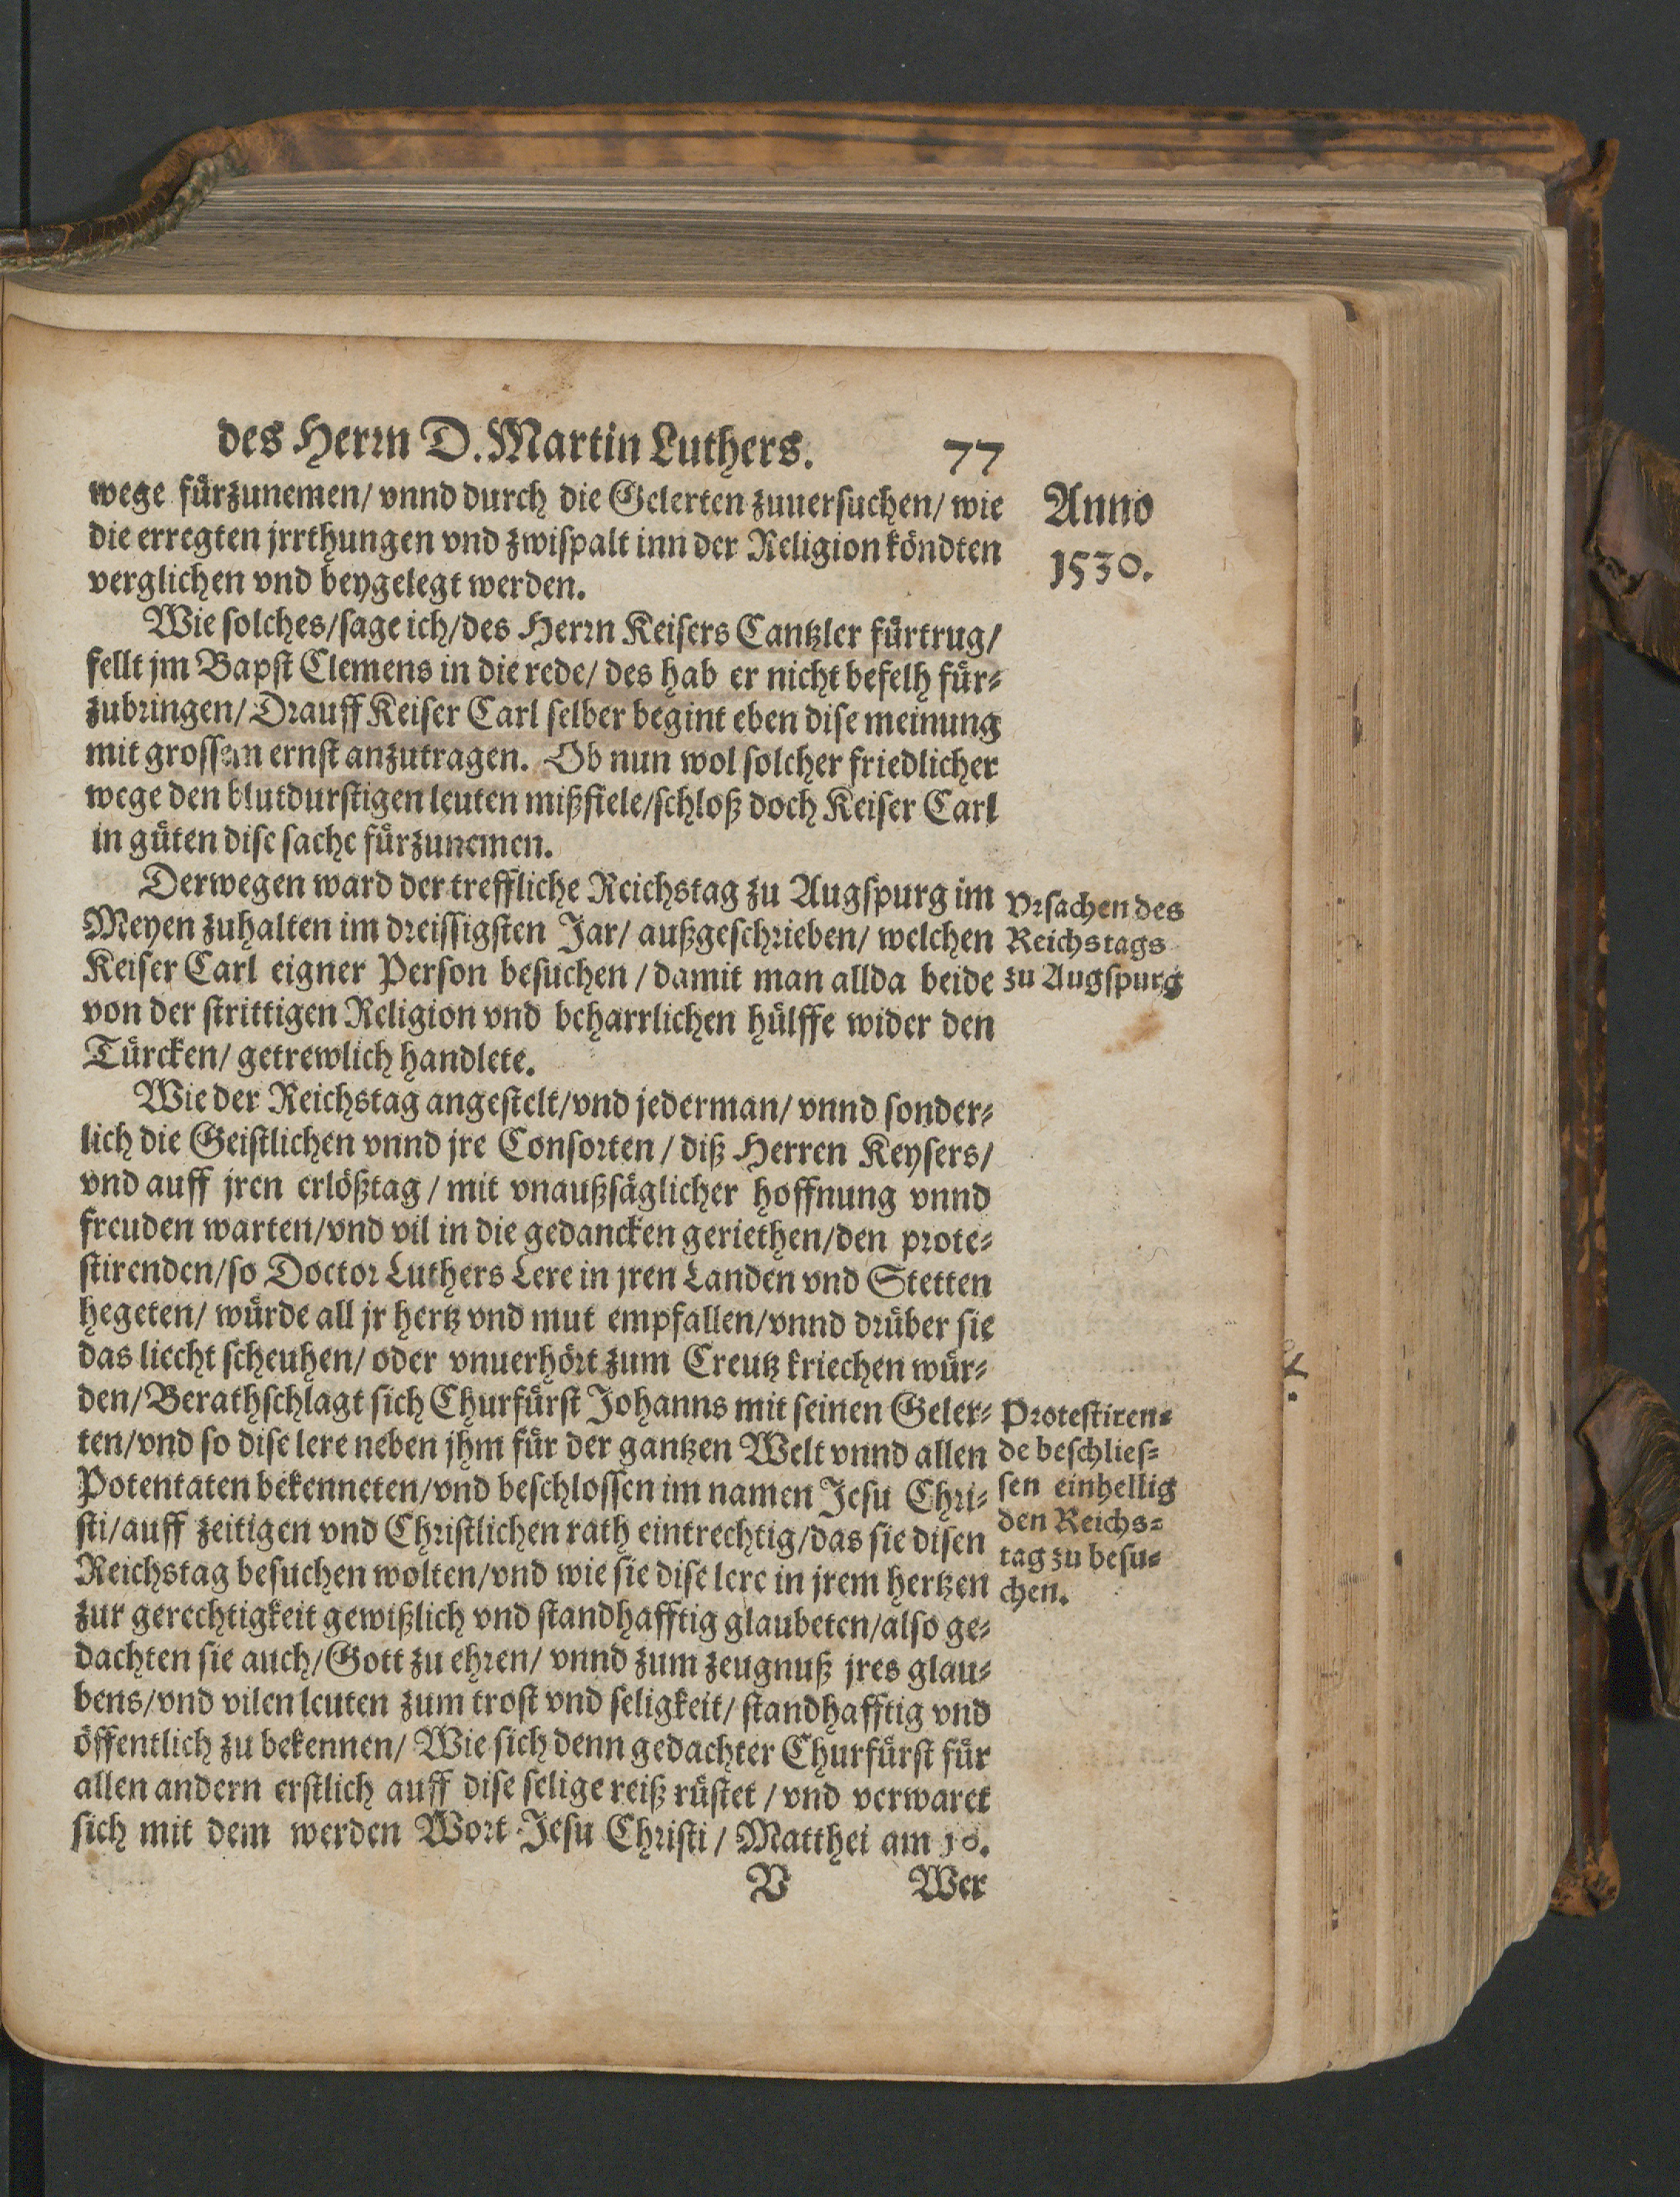 des Herrn D. Martin Luthers. 77
wege fürzunemen/ vnnd durch die Gelerten zuuersuchen/ wie
die erregten jrrthungen vnd zwispalt inn der Religion köndten
verglichen vnd beygelegt werden.
Anno
1530.
Wie solches/sage ich/des Herrn Keisers Cantzler fürtrug/
fellt jm Bapst Clemens in die rede/ des hab er nicht befelh für-
zubringen/ Drauff Keiser Carl selber begint eben dise meinung
mit grossem ernst anzutragen. Ob nun wol solcher friedlicher
wege den blutdurstigen leuten mißfiele/schloß doch Keiser Carl
in güten dise sache fürzunemen.
Derwegen ward der treffliche Reichstag zu Augspurg im
Meyen zuhalten im dreissigsten Jar/ außgeschrieben/ welchen
Keiser Carl eigner Person besuchen / damit man allda beide
von der strittigen Religion vnd beharrlichen hülffe wider den
Türcken/ getrewlich handlete.
Vrsachen des
Reichstags
zu Augspurg
Wie der Reichstag angestelt/vnd jederman/ vnnd sonder-
lich die Geistlichen vnnd jre Consorten / diß Herren Keysers/
vnd auff jren erlößtag / mit vnaußsäglicher hoffnung vnnd
freuden warten/vnd vil in die gedancken geriethen/den prote-
stirenden/so Doctor Luthers Lere in jren Landen vnd Stetten
hegeten/ würde all jr hertz vnd mut empfallen/vnnd drüber sie
das liecht scheuhen/ oder vnuerhört zum Creutz kriechen wür-
den/Berathschlagt sich Churfürst Johanns mit seinen Geler-
ten/vnd so dise lere neben jhm für der gantzen Welt vnnd allen
Potentaten bekenneten/vnd beschlossen im namen Jesu Chri-
sti/auff zeitigen vnd Christlichen rath eintrechtig/das sie disen
Reichstag besuchen wolten/vnd wie sie dise lere in jrem hertzen
zur gerechtigkeit gewißlich vnd standhafftig glaubeten/also ge-
dachten sie auch/Gott zu ehren/ vnnd zum zeugnuß jres glau-
bens/vnd vilen leuten zum trost vnd seligkeit/ standhafftig vnd
öffentlich zu bekennen/ Wie sich denn gedachter Churfürst für
allen andern erstlich auff dise selige reiß rüstet / vnd verwaret
sich mit dem werden Wort Jesu Christi / Matthei am 10.
Protestiren-
de beschlies-
sen einhellig
den Reichs-
tag zu besu-
chen.
V Wer